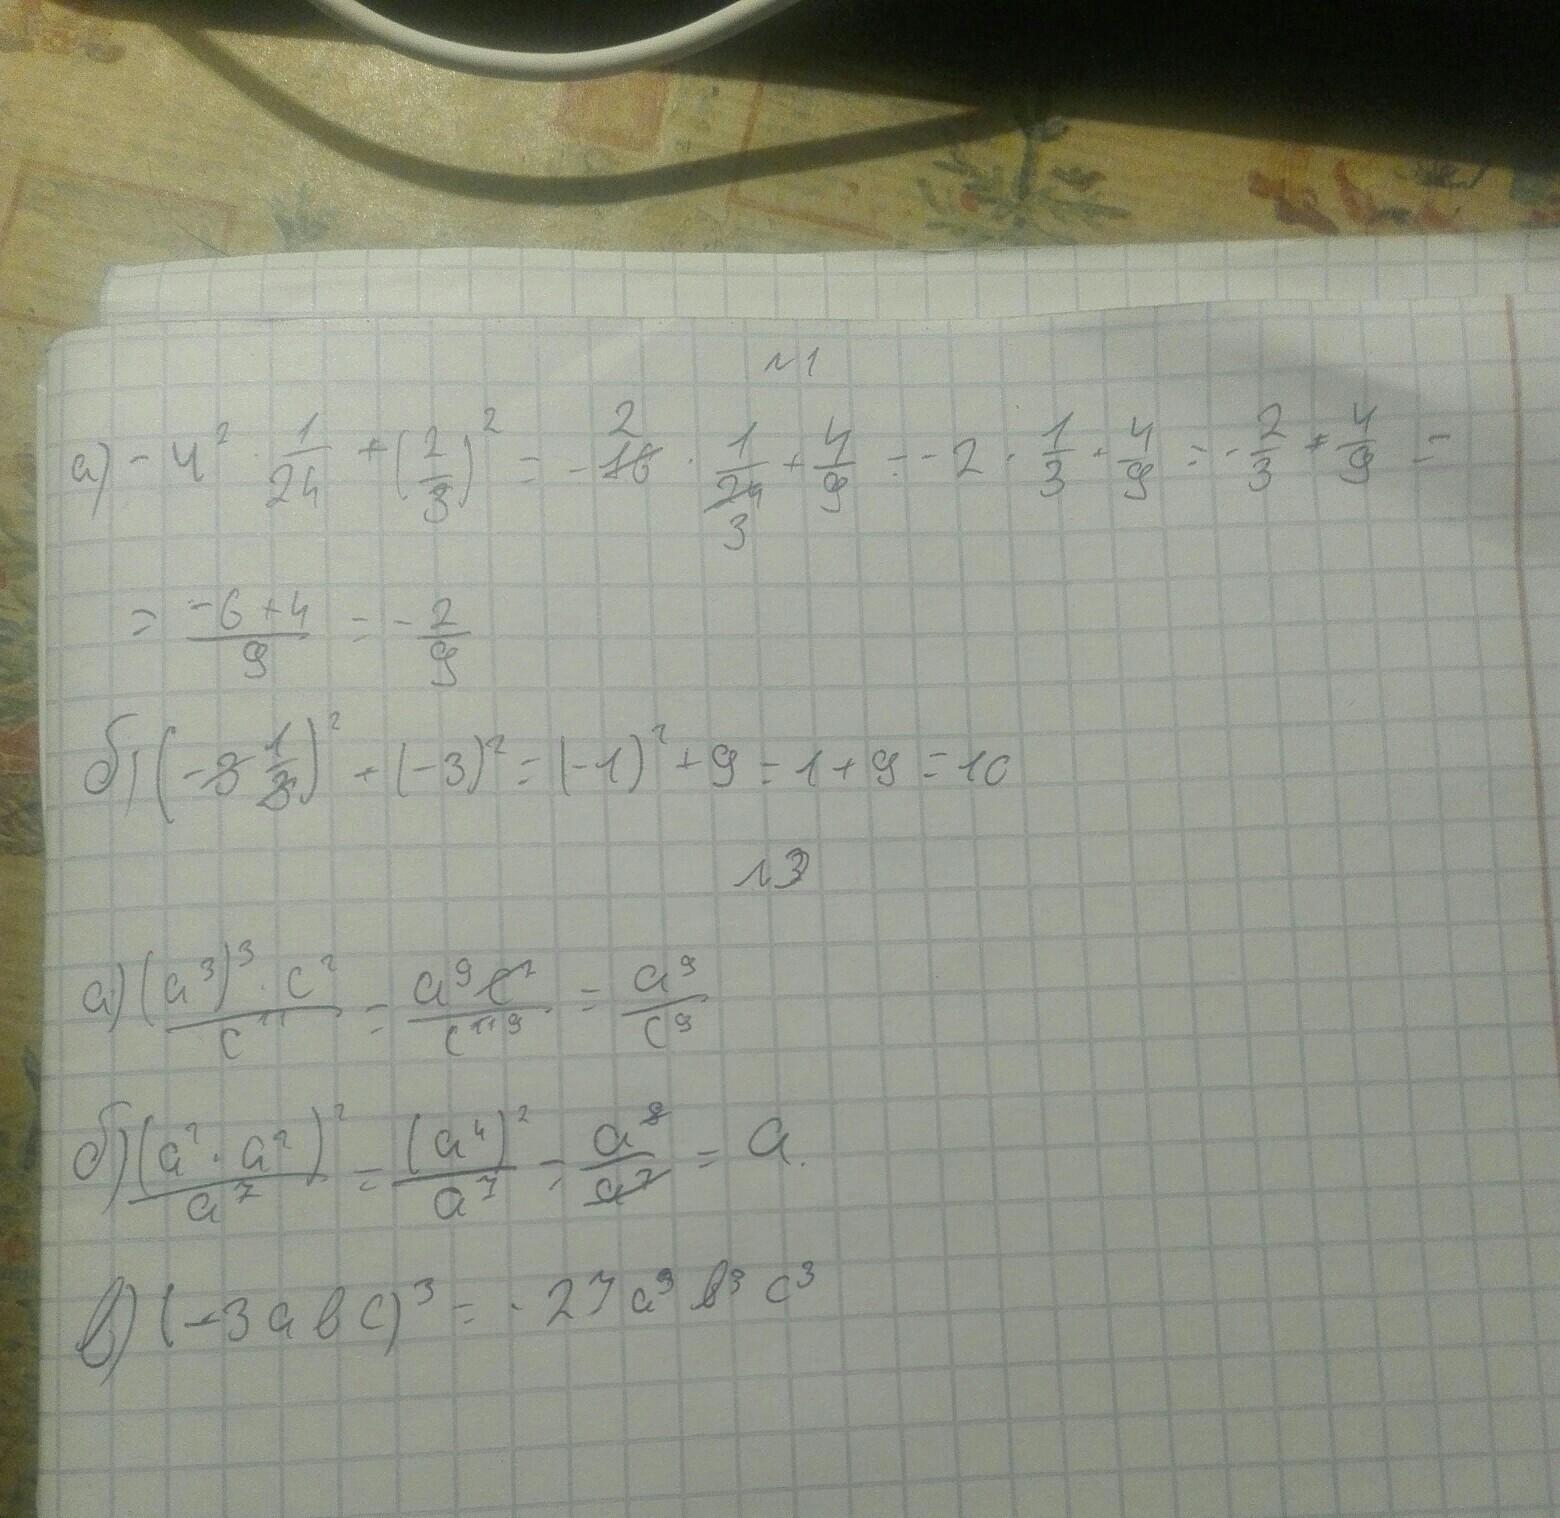 №1
а) -4² · 1/24 + (2/3)² = -16 2 · 1/24 3 + 4/9 = -2 · 1/3 + 4/9 = -2/3 + 4/9 =
= -6+4/9 = -2/9
б) (-3 1/3)² + (-3)² = (-1)² + 9 = 1 + 9 = 10
№3
а) (a³)³ · c²/c¹¹ = a⁹c²/c¹¹ ⁹ = a⁹/c⁹
б) (a² · a²)²/a⁷ = (a⁴)²/a⁷ = a⁸/a⁷ = a.
в) (-3abc)³ = -27a³b³c³